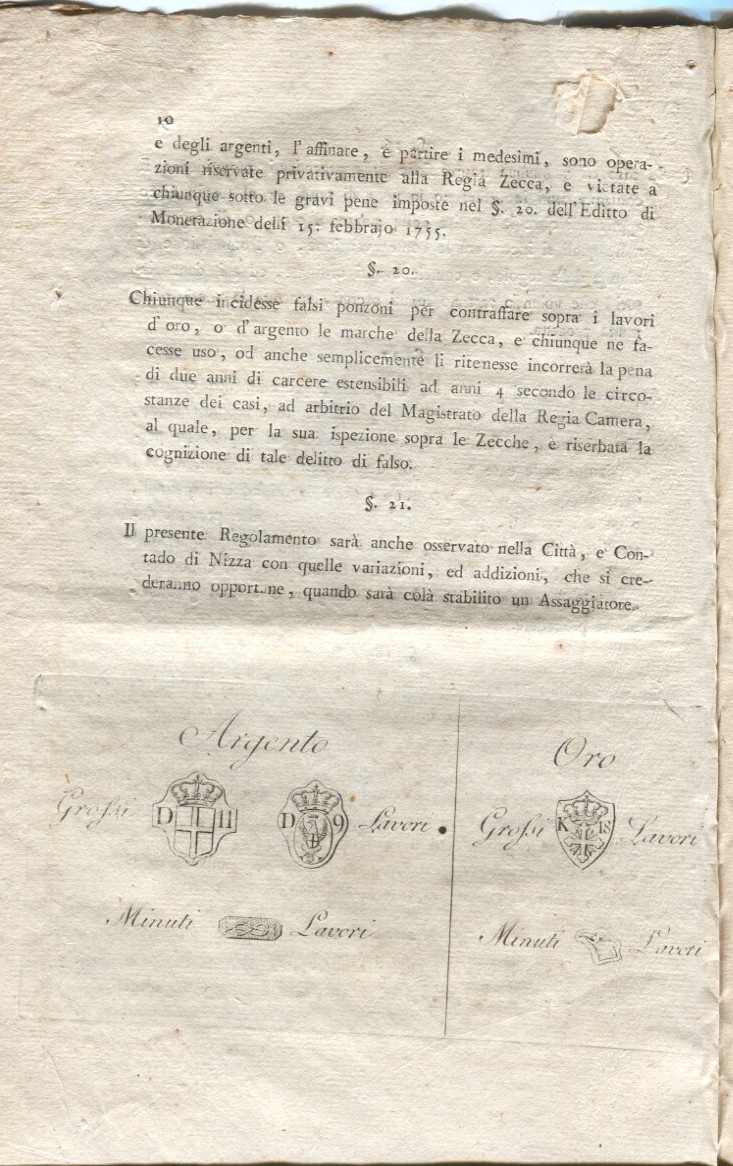 10
e degli argenti, l'affinare, e partire i medesimi, sono opera-
zioni riservate privativamente alla Regia Zecca, e vietate a
chiunque sotto le gravi pene imposte nel §. 20. dell'Editto di
Monetazione delli 15. febbrajo 1755.
§. 20.
Chiunque incidesse falsi ponzoni per contraffare sopra i lavori
d'oro, o d'argento le marche della Zecca, e chiunque ne fa-
cesse uso, od anche semplicemente li ritenesse incorrerà la pena
di due anni di carcere estensibili ad anni 4 secondo le circo-
stanze dei casi, ad arbitrio del Magistrato della Regia Camera,
al quale, per la sua ispezione sopra le Zecche, è riserbata la
cognizione di tale delitto di falso.
§. 21.
Il presente Regolamento sarà anche osservato nella Città, e Con-
tado di Nizza con quelle variazioni, ed addizioni, che si cre-
deranno opportune, quando sarà colà stabilito un Assaggiatore.
Argento
Grossi D 11 D 9 Lavori
Minuti Lavori
Oro
Grossi K 18 Lavori
Minuti Lavori